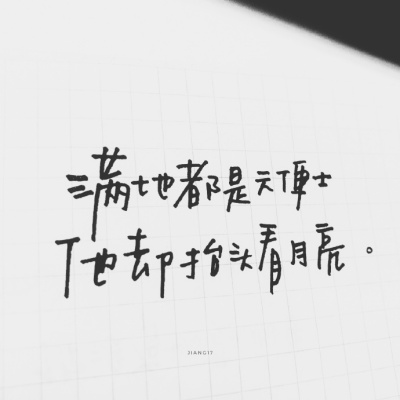 满地都是六便士
他却抬头看月亮。
JIANG17